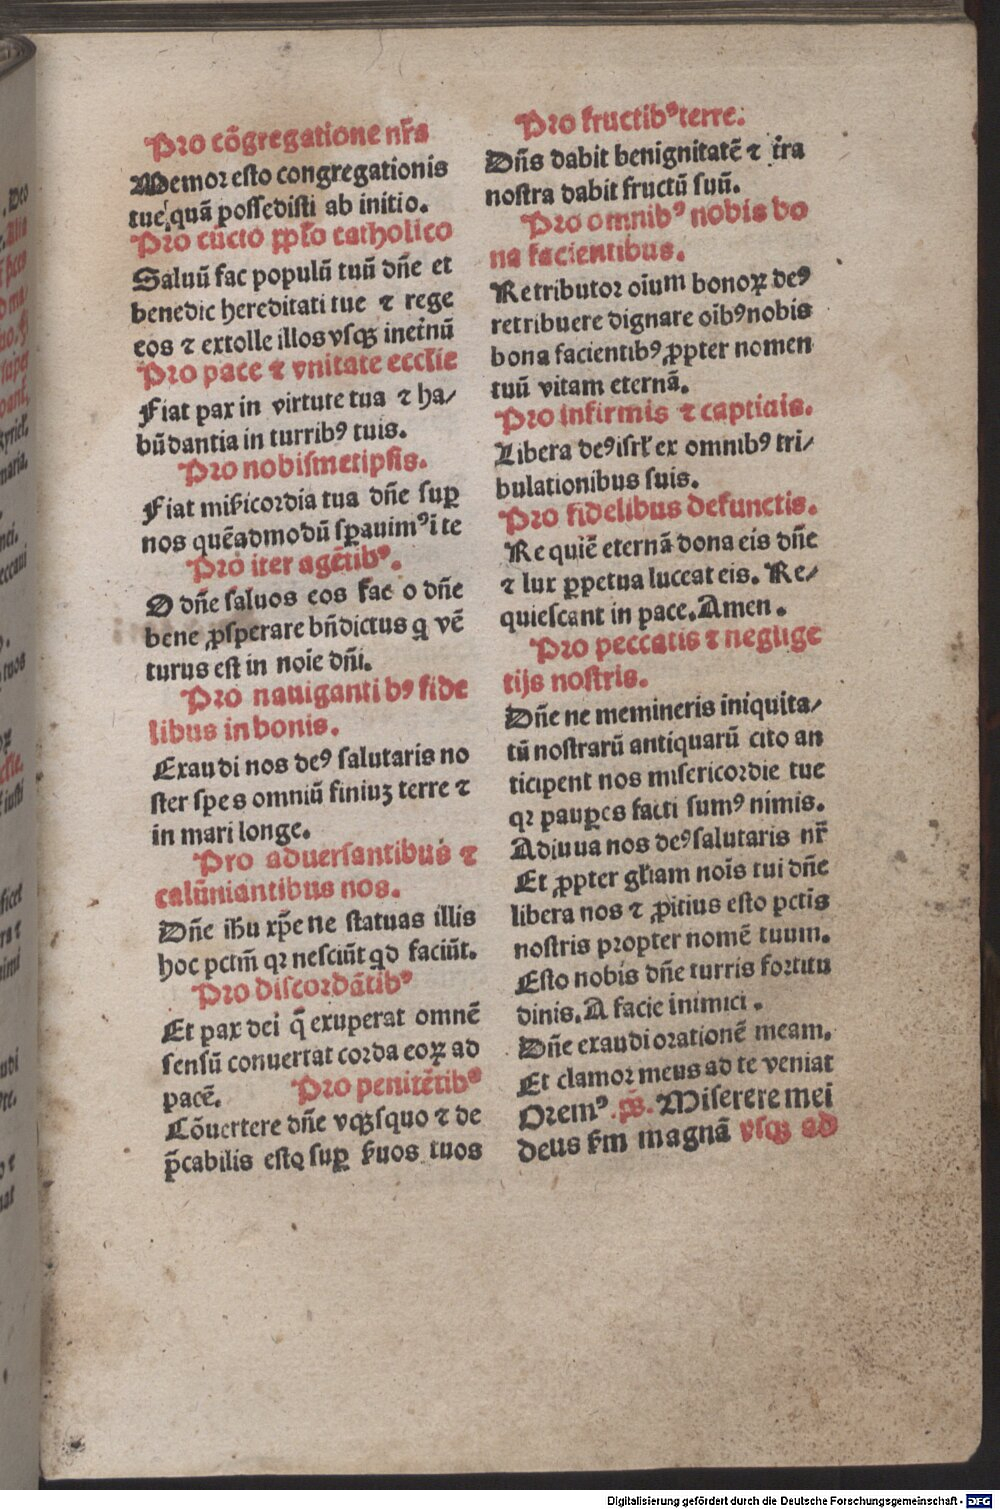 Pro cõgregatione nr̃a
Memor esto congregationis
tue quã possedisti ab initio.
Pro cũcto pp̃lo catholico
Saluũ fac populũ tuũ dñe et
benedic hereditati tue ⁊ rege
eos ⁊ extolle illos vsqꝫ inet̃nũ
Pro pace ⁊ vnitate ecclie
Fiat pax in virtute tua ⁊ ha/
bũdantia in turribꝰ tuis.
Pro nobismetipsis.
Fiat mĩcordia tua dñe suꝑ
nos quẽadmodũ sꝑauimꝰ i te
Pro iter agẽtibꝰ.
O dñe saluos eos fac o dñe
bene ꝓsperare bñdictus q vẽ
turus est in noie dñi.
Pro nauigantibꝰ fide
libus in bonis.
Exaudi nos deꝰ salutaris no
ster spes omniũ finiuꝫ terre ⁊
in mari longe.
Pro aduersantibus ⁊
calũniantibus nos.
Dñe ih̃u xp̃e ne statuas illis
hoc pctm̃ qꝛ nesciũt qd faciũt.
Pro discordãtibꝰ
Et pax dei q̃ exuperat omnẽ
sensũ conuertat corda eoꝝ ad
pacẽ. Pro penitẽtibꝰ
Cõuertere dñe vsqꝫquo ⁊ de
p̃cabilis esto suꝑ s̃uos tuos
Pro fructibꝰ terre.
Dñs dabit benignitatẽ ⁊ t̃ra
nostra dabit fructũ suũ.
Pro omnibꝰ nobis bo
na facientibus.
Retributor oĩum bonoꝝ deꝰ
retribuere dignare oĩbꝰ nobis
bona facientibꝰ ꝓpter nomen
tuũ vitam eternã.
Pro infirmis ⁊ captiuis.
Libera deꝰ isrl̃ ex omnibꝰ tri/
bulationibus suis.
Pro fidelibus defunctis.
Requiẽ eternã dona eis dñe
⁊ lux ꝑpetua luceat eis. Re/
quiescant in pace. Amen.
Pro peccatis ⁊ neglige
tijs nostris.
Dñe ne memineris iniquita/
tũ nostrarũ antiquarũ cito an
ticipent nos misericordie tue
qꝛ pauꝑes facti sumꝰ nimis.
Adiuua nos deꝰ salutaris nr̃
Et ꝓpter gl̃iam noĩs tui dñe
libera nos ⁊ ꝓpitius esto pctis
nostris propter nomẽ tuum.
Esto nobis dñe turris fortitu
dinis. A facie inimici.
Dñe exaudi orationẽ meam.
Et clamor meus ad te veniat
Oremꝰ. p̃s. Miserere mei
deus s̃m magnã vsqꝫ ad
Digitalisierung gefördert durch die Deutsche Forschungsgemeinschaft - DFG